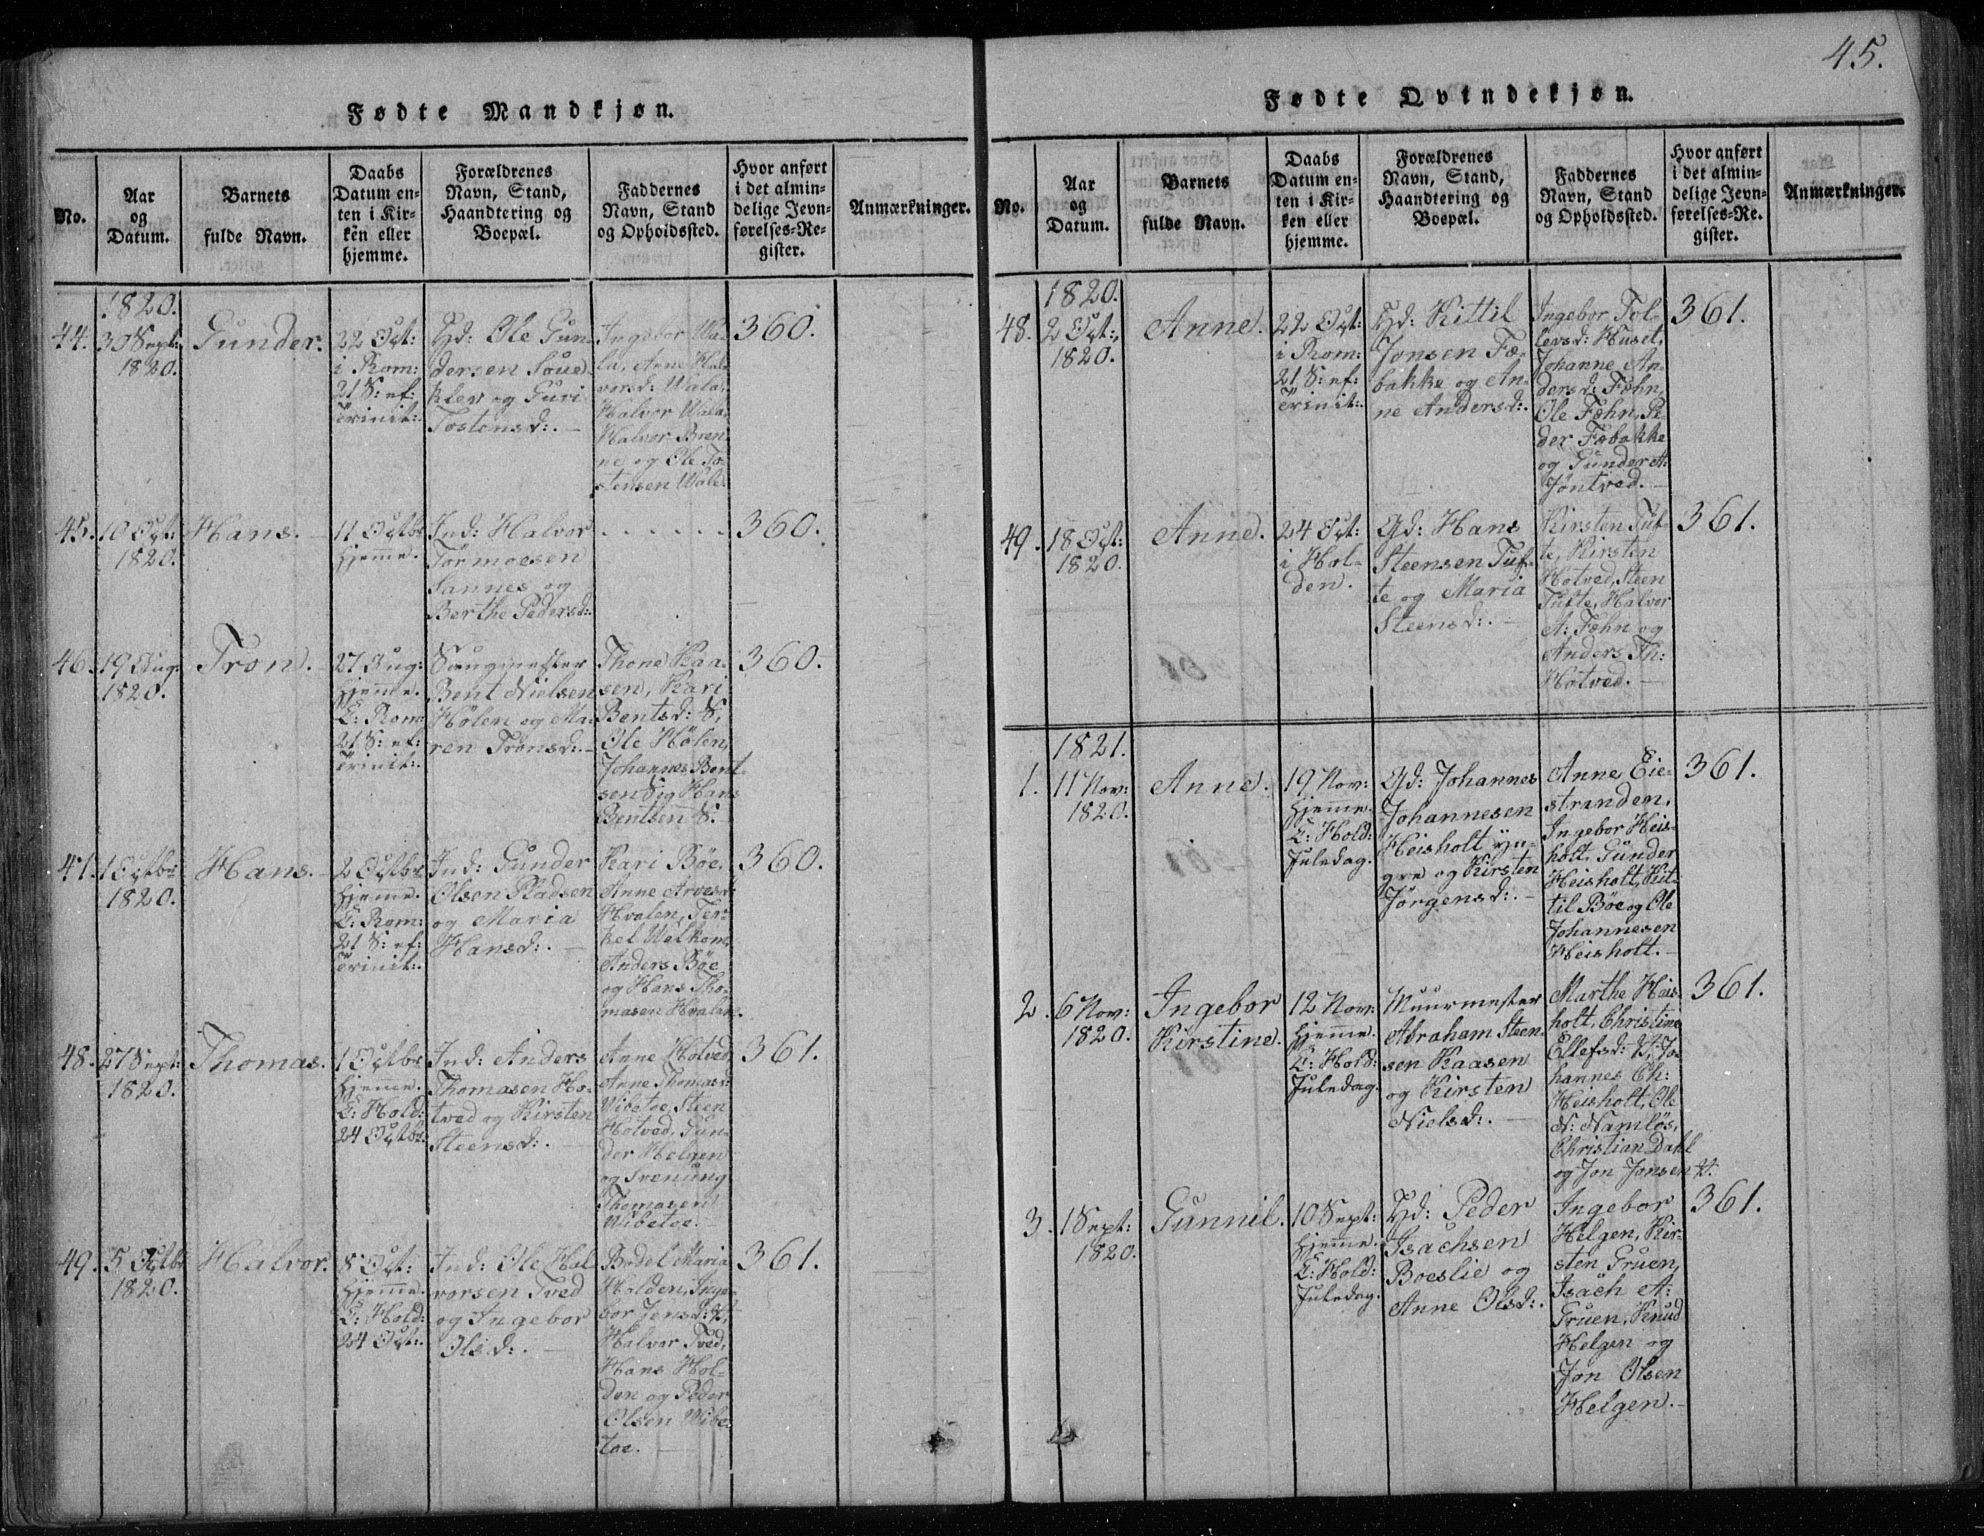 45.
Fødte Mandkjøn.
No.
Aar
og
Datum.
Barnets
fulde Navn.
Daabs
Datum en-
ten i Kir-
ken eller
hjemme.
Forældrenes
Navn, Stand,
Haandtering og
Boepæl.
Faddernes
Navn, Stand
og Opholdssted.
Hvor anført
i det almin-
delige Jevn-
førelses-Re-
gister.
Anmærkninger.
1820.
44.
30 Sept:
1820.
Gunder.
22 Oct:
i Rom:
21 S: ef:
Trinit:.
Hd: Ole Gun
dersen Soue
klev og Guri
Tostensd:. —
Ingebor Wa-
la, Anne Hal-
vorsd: Wala,
Halvor Wala,
Halvor Bren-
ne og Ole To-
stensen Wale.
360.
45.
10 Oct:
1820.
Hans. —
11 Octbr
hjemme.
Ind: Halvor
Tormoesen
Sannes og
Berthe Pedersd:.
. . . . . .
360.
46.
19 Aug:
1820.
Tron.
27 Aug:
hjemme.
E: Rom:
21 S: ef:
Trinit:.
Saugmester
Bent Nielsen
Holen og Ma-
ren Tronsd:. —
Thone Kaa-
sen, Kari
Bentsd: S,
Ole Hølen,
Johannes Bent
sen og Hans
Bentsen S. —
360.
47.
1 Octbr
1820.
Hans. —
2 Octbr
hjemme.
E: Rom:
21 S: ef:
Trinit:.
Ind: Gunder
Olsen Pladsen
og Maria
Hansd:. —
Kari Böe,
Anne Arvesd:
Hvalen, Ter-
kel Walkom,
Anders Böe
og Hans Tho-
masen Hvalen.
360.
48.
27 Sept:
1820.
Thomas.
1 Octbr
hjemme.
E: Hold:
24 Octbr:
Ind: Anders
Thomasen Ho-
tved og Kirsten
Steensd:. —
Anne Hotved,
Anne Thomasd:
Vibetoe, Steen
Hotved, Gun-
der Helgen
og Svenung
Thomasen
Vibetoe. —
361.
49.
5 Octbr
1820.
Halvor.
8 Oct:
hjemme.
E: Hold:
24 Oct:.
Ind: Ole Hal
vorsen Tved
og Ingebor
Olsd:. —
Bodel Maria
Holden, Inge-
bor Jensd:
Halvor Tved,
Hans Hol-
den og Peder
Olsen Wibe-
toe. —
361.
Fødte Qvindekjøn.
No.
Aar
og
Datum.
Barnets
fulde Navn.
Daabs
Datum en-
ten i Kir-
ken eller
hjemme.
Forældrenes
Navn, Stand,
Haandtering og
Boepæl.
Faddernes
Navn, Stand
og Opholdssted.
Hvor anført
i det almin-
delige Jevn-
førelses-Re-
gister.
Anmærkninger.
1820.
48.
2 Oct:
1820.
Anne.
22 Oct:
i Rom:
21 S: ef:
Trinit:.
Hd: Kittil
Jonsen Fæ-
bakke og An-
ne Andersd:.
Ingebor Tol-
levsd: Huset,
Johanne An-
dersd: Fæhn,
Ole Fæhn, Pe
der Fæbakke
og Gunder A:
Jöntved. —
361.
49.
18 Oct:
1820.
Anne.
24 Oct:
i Hol-
den.
Gd: Hans
Steensen Tuf-
te og Maria
Steensd:. —
Kirsten Tuf-
te, Kirsten
Hotved, Steen
Tufte, Halvor
A: Fæhn og
Anders Th:
Hotved. —
361.
1821.
1.
11 Nov:
1820.
Anne.
19 Nov:
hjemme.
E: Hold:
Juledag.
Gd: Johannes
Johannesen
Heisholt yn-
gre og Kirsten
Jörgensd:. —
Anne Eie-
stranden,
Ingebor Heis-
holt, Gunder
Heisholt, Kit-
til Böe og Ole
Johannesen
Heisholt. —
361.
2.
6 Nov:
1820.
Ingebor
Kirstine.
12 Nov:
hjemme.
E: Hold:
Juledag.
Muurmester
Abraham Steen
sen Kaasen
og Kirsten
Nielsd:. —
Marthe Heis-
holt, Christine
Ellefsd: Jo-
hannes Ch:
Heisholt, Ole
N: Namlös,
Christian Dahl
og Jon Jonsen
361.
3.
1 Sept:
1820.
Gunnil.
10 Sept:
hjemme.
E: Hold:
Juledag.
Hd: Peder
Isachsen
Boeslie og
Anne Olsd:.
Ingebor
Helgen, Kir-
sten Gruen,
Isach A:
Gruen, Knud
Helgen og
Jon Olsen
Helgen. —
361.